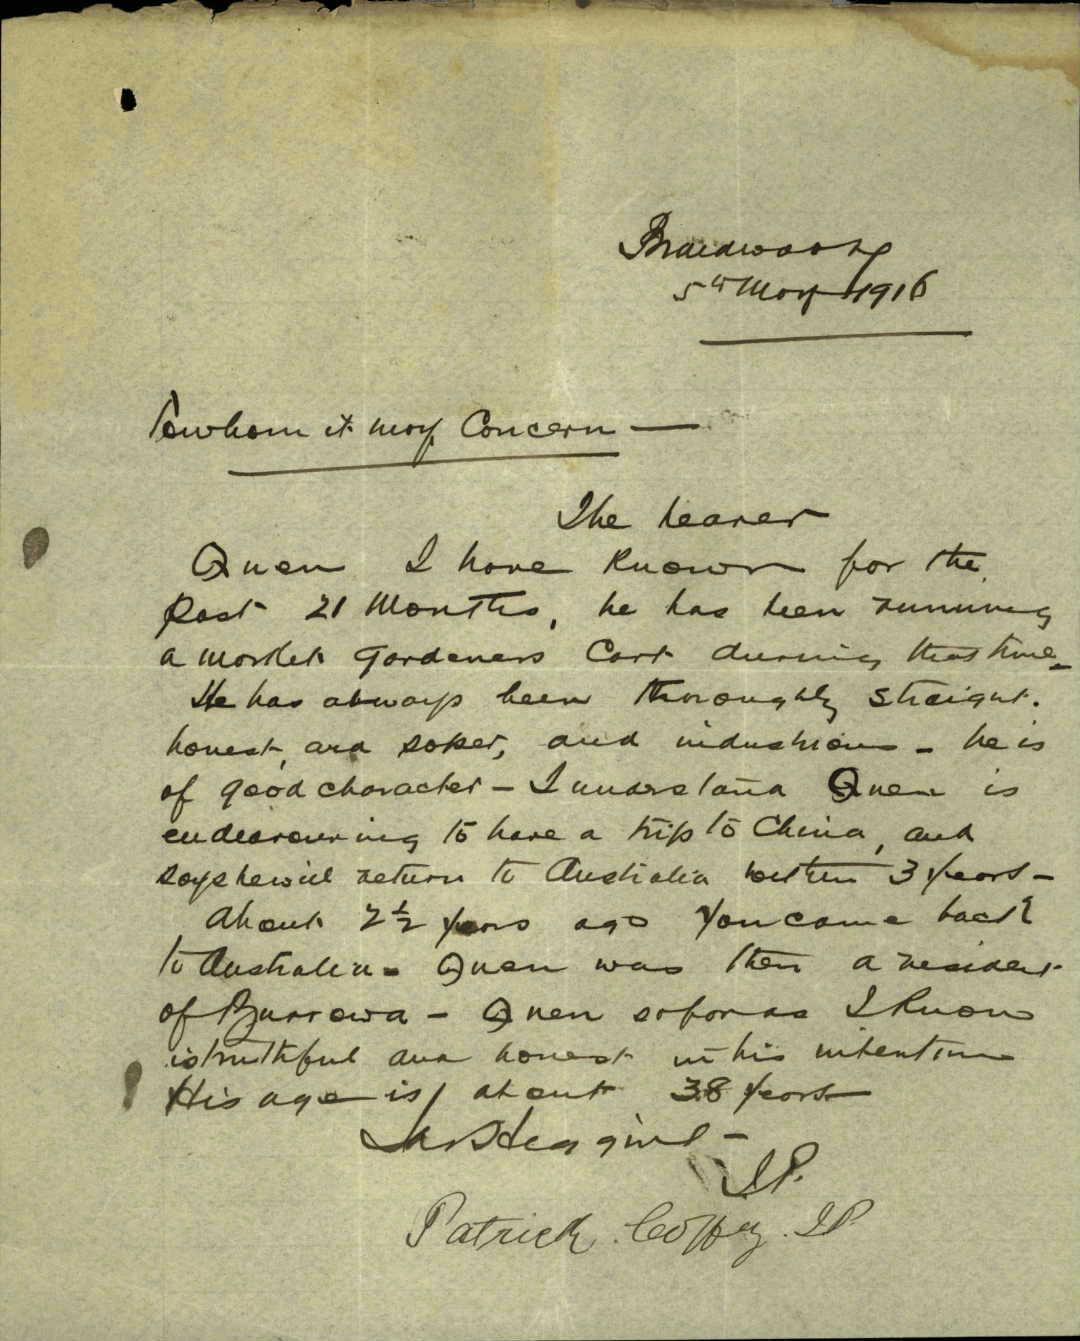 Braidwood
5th May 1916
To whom it may Concern —
The bearer
Quen I have Known for the
past 21 Months, he has been running
a market Gardeners Cart during that time –
He has always been thoroughly straight.
honest, and sober, and industrious – he is
of good character – I understand Quen is
endeavouring to have a trip to China, and
says he will return to Australia within 3 years –
About 2½ years ago came back
to Australia – Quen was then a resident
of Burrowa – Quen so far as I Know
is truthful and honest in his intentions
His age is about 38 years –
J.P.
Patrick Coffey. J.P.